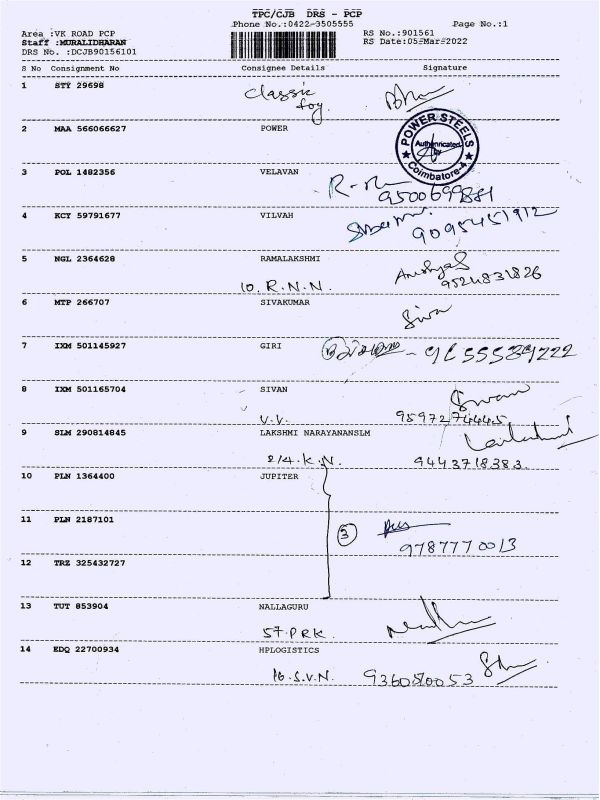 TPC/CJB DRS - PCP
Phone No.:0422-3505555
Page No.:1
Area :VK ROAD PCP
Staff :MURALIDHARAN
DRS No. :DCJB90156101
RS No.:901561
RS Date:05-Mar-2022
S No Consignment No Consignee Details Signature
1 STY 29698 Classic toy
2 MAA 566066627 POWER
POWER STEELS Authenticated Coimbatore-4
3 POL 1482356 VELAVAN
9500699884
4 KCY 59791677 VILVAH
9095451912
5 NGL 2364628 RAMALAKSHMI
10. R.N.N. 9524831826
6 MTP 266707 SIVAKUMAR Siva
7 IXM 501145927 GIRI
8 IXM 501165704 SIVAN
V.V. 9597274445
9 SLM 290814845 LAKSHMI NARAYANANSLM
2/4. K.N. 9443718383.
10 PLN 1364400 JUPITER
11 PLN 2187101 3
9787770013
12 TRZ 325432727
13 TUT 853904 NALLAGURU
57. PRK.
14 EDQ 22700934 HPLOGISTICS
16. S.V.N. 9360580053